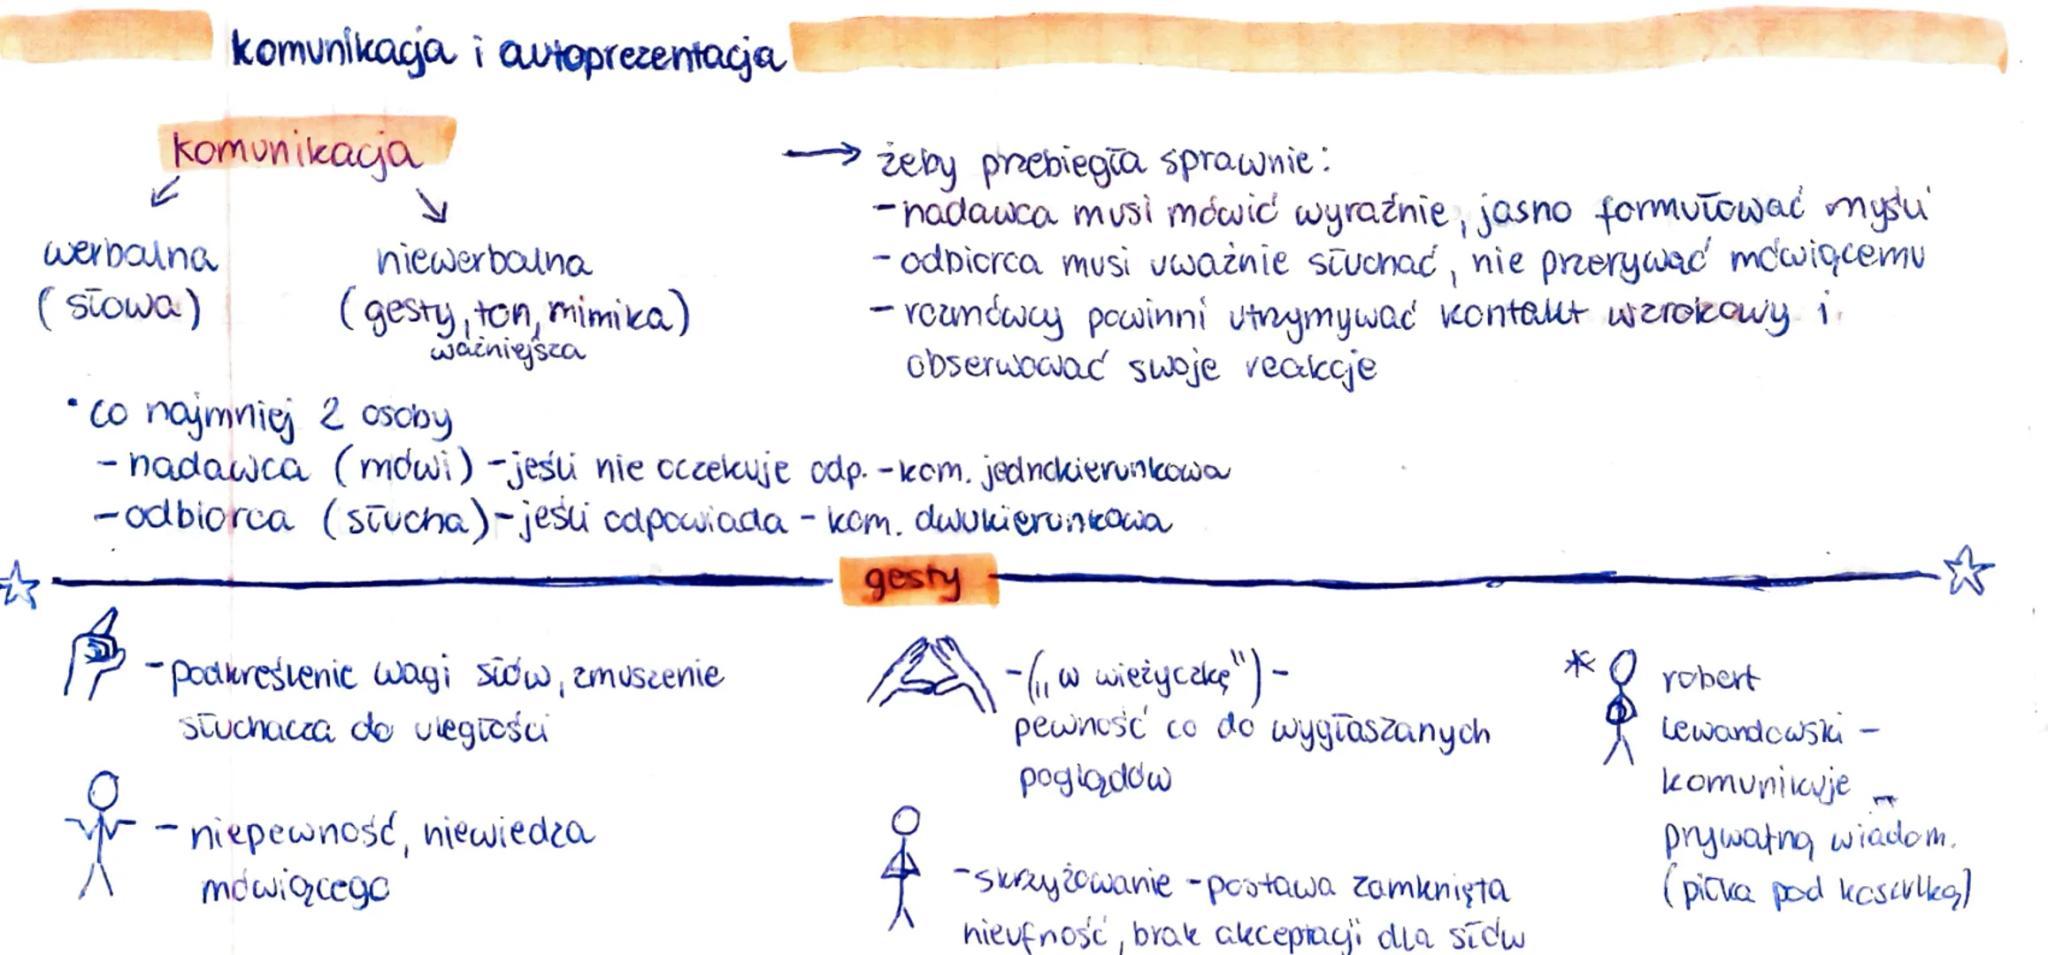 komunikacja i autoprezentacja
komunikacja
werbalna
(słowa)
niewerbalna
(gesty, ton, mimika)
ważniejsza
→ żeby przebiegła sprawnie:
- nadawca musi mówić wyraźnie, jasno formułować myśli
- odbiorca musi uważnie słuchać, nie przerywać mówiącemu
- rozmówcy powinni utrzymywać kontakt wzrokowy i
obserwować swoje reakcje
• co najmniej 2 osoby
- nadawca (mówi) - jeśli nie oczekuje odp. - kom. jednokierunkowa
- odbiorca (słucha) - jeśli odpowiada - kom. dwukierunkowa
gesty
- podkreślenie wagi słów, zmuszenie
słuchacza do uległości
- niepewność, niewiedza
mówiącego
- („w wieżyczkę") -
pewność co do wygłaszanych
poglądów
- skrzyżowanie - postawa zamknięta
nieufność, brak akceptacji dla słów
* robert
lewandowski -
komunikuje
prywatną wiadom.
(piłka pod koszulką)